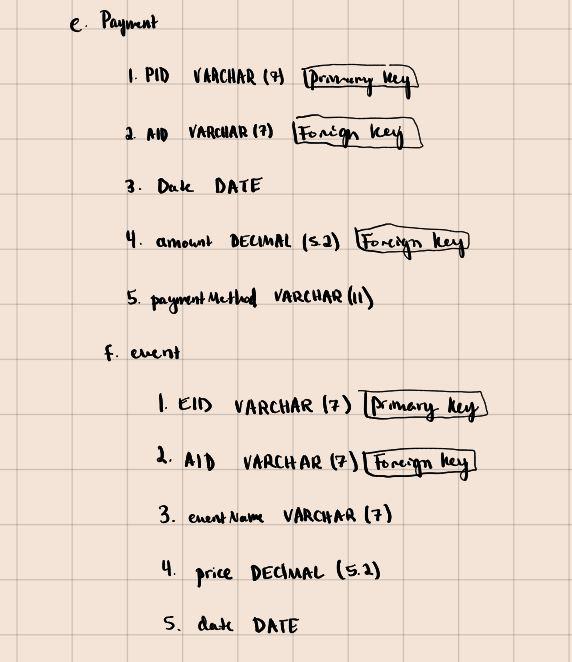 e. Payment
1. PID VARCHAR (7) Primary key
2. AID VARCHAR (7) Foreign key
3. Date DATE
4. amount DECIMAL (5.2) Foreign key
5. paymentMethod VARCHAR (11)
f. event
1. EID VARCHAR (7) Primary key
2. AID VARCHAR (7) Foreign key
3. eventName VARCHAR (7)
4. price DECIMAL (5.2)
5. date DATE